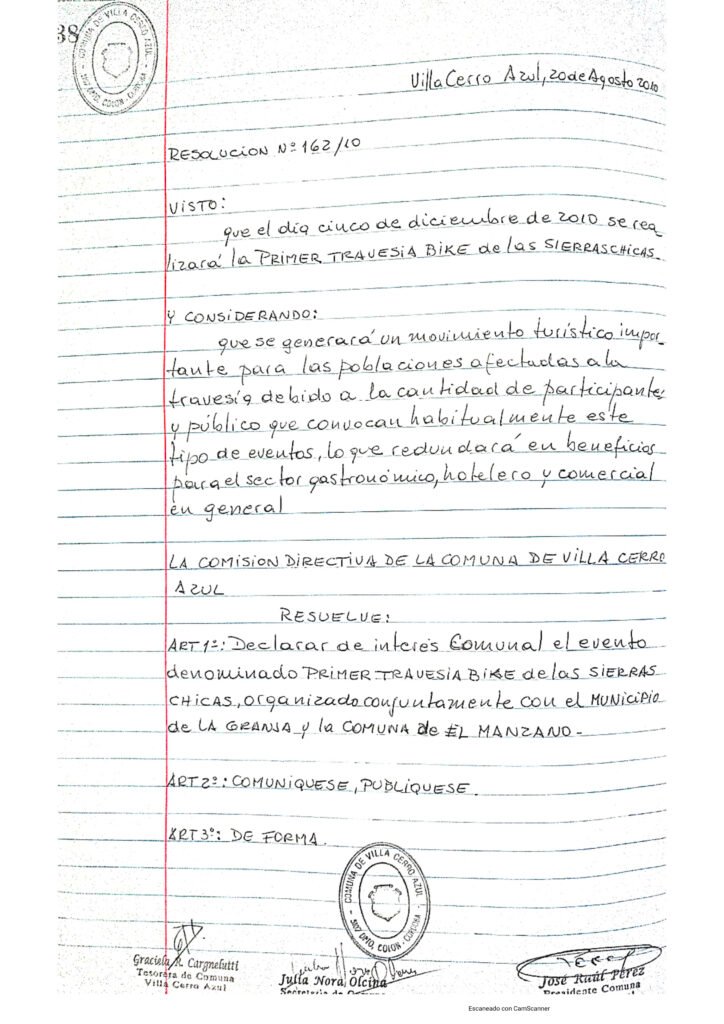 38
COMUNA DE VILLA CERRO AZUL
5107 DPTO. COLON - CORDOBA
Villa Cerro Azul, 20 de Agosto 2010
RESOLUCION Nº 162/10
VISTO:
que el día cinco de diciembre de 2010 se rea
lizará la PRIMER TRAVESIA BIKE de las SIERRAS CHICAS.
Y CONSIDERANDO:
que se generará un movimiento turístico impor-
tante para las poblaciones afectadas a la
travesía debido a la cantidad de participantes
y público que convocan habitualmente este
tipo de eventos, lo que redundará en beneficios
para el sector gastronómico, hotelero y comercial
en general
LA COMISION DIRECTIVA DE LA COMUNA DE VILLA CERRO
AZUL
RESUELVE:
ART 1º: Declarar de interés Comunal el evento
denominado PRIMER TRAVESIA BIKE de las SIERRAS
CHICAS, organizado conjuntamente con el MUNICIPIO
de LA GRANJA y la COMUNA de EL MANZANO -
ART 2º: COMUNIQUESE, PUBLIQUESE.
ART 3º: DE FORMA.
COMUNA DE VILLA CERRO AZUL
5107 DPTO. COLON - CORDOBA
Graciela R. Cargnelutti
Tesorera de Comuna
Villa Cerro Azul
Julia Nora Olcina
Secretaria de Comuna
José Raúl Pérez
Presidente Comuna
Escaneado con CamScanner